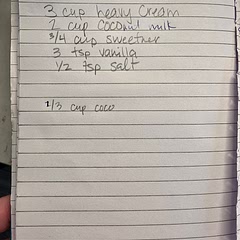 3 cup heavy Cream
2 cup Coconut milk
3/4 cup sweetner
3 tsp vanilla
1/2 tsp salt
1/3 cup coco